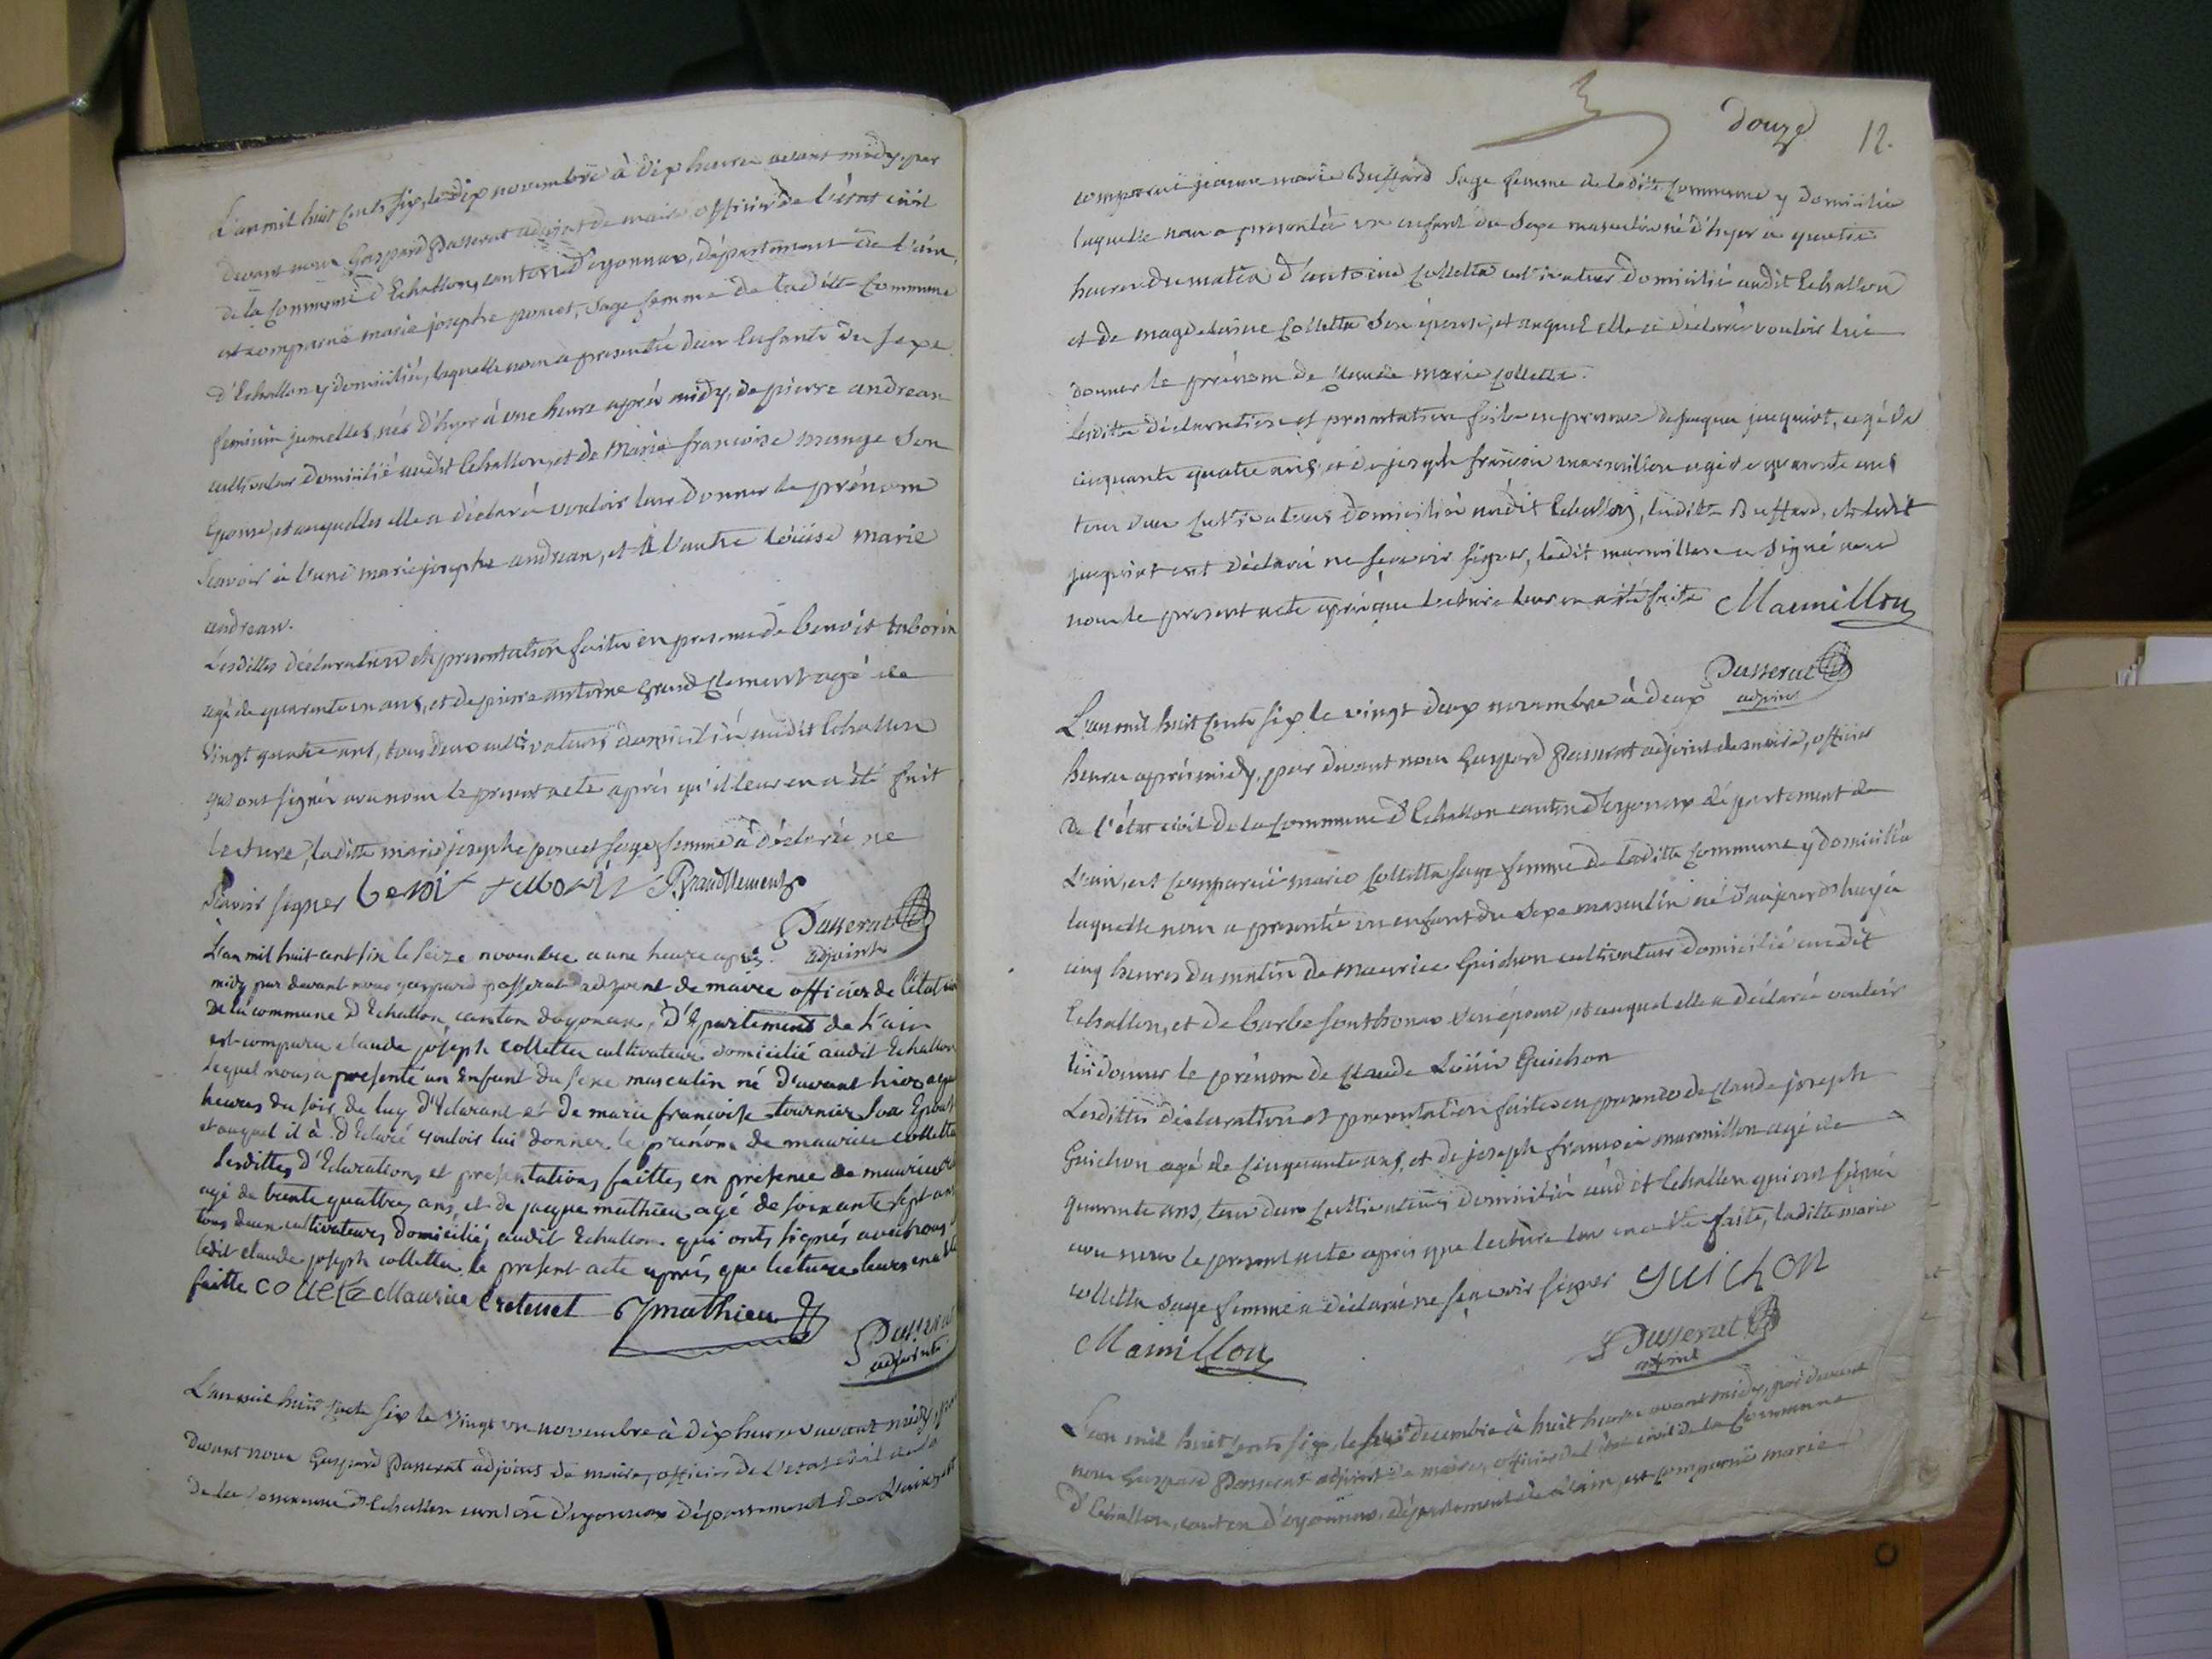 L'an mil huit cents six, le dix novembre à dix heures avant midy, par
devant nous Gaspard Passerat adjoint de maire officier de l'état civil
de la Commune d'Echallon, canton d'oyonnax, département de l'ain,
est comparue marie josephe poncet, sage femme de laditte Commune
d'Echallon y domiciliée, laquelle nous a presentée deux Enfants du sexe
feminin jumelles, nés d'hyer à une heure après midy, de pierre andrean
cultivateur domicilié audit Echallon, et de Marie francoise mange son
Epouse, et auquelles elle a déclaré vouloir leur donner le prénom
scavoir à l'une marie josephe andrean, et à l'autre loüise marie
andrean.
Lesdittes déclaration et presentation faites en presence de benoit taborin
agé de quarante un ans, et de pierre antoine grand Clement agé de
vingt quatre ans, tous deux cultivateurs domiciliés audit Echallon
qui ont signés avec nous le present acte après qu'il leur en a été fait
lecture, laditte marie josephe poncet sage femme à déclarée ne
scavoir signer benoit taborin PGrandClement
Passerat
adjoint
L'an mil huit cent six le seize novembre a une heure après
midy par devant nous gaspard passerat adjoint de maire officier de l'état
de la commune d'Echallon canton doyonax, d'Epartement de l'ain
est comparu claude joseph colletta cultivateur domicilié audit Echallon
lequel nous a presenté un Enfant du sexe masculin né d'avant hier a
heures du soir de luy d'Eclarant et de marie francoise tournier son Epouse
et auquel il à d'Eclaré vouloir lui donner le prénom de maurice colletta
Lesdittes d'Eclarations et presentations faittes en presence de maurice
agé de trente quattre ans, et de jacque mathieu agé de soixante sept ans
tous deux cultivateurs domiciliés audit Echallon qui onts signés avec nous
ledit claude joseph colletta le present acte après que lecture leurs en a
faitte colleta Maurice Cretenet J mathieu
Passerat
adjoint
L'an mil huit cents six le vingt un novembre à dix heures avant midy, par
devant nous Gaspard Passerat adjoint de maire, officier de l'état civil de la
de la Commune d'Echallon canton d'oyonnax département de L'ain, est
douze 12.
comparuë jeanne marie Buffard sage femme de laditte Commune y domiciliée
laquelle nous a presentée un enfant du sexe masculin né d'hyer à quatre
heures du matin d'antoine Colletta cultivateur domicilié audit Echallon
et de magdelaine Colletta son épouse, et auquel elle a déclaré vouloir lui
donner le prénom de marie Colletta.
Lesdites déclaration et presentation faites en presence de jacques jacquiot, agé de
cinquante quatre ans, et de joseph francois marmillon agé de quarante ans
tous deux Cultivateurs domiciliés audit Echallon, laditte Buffard, et ledit
jacquiot ont déclaré ne scavoir signer, ledit marmillon a signé avec
nous le present acte après que lecture leur en a été faite Marmillon
Passerat
adjoint
L'an mil huit cents six le vingt deux novembre à deux
heures après midy, par devant nous Gaspard Passerat adjoint de maire, officier
de l'état civil de la Commune d'Echallon canton d'oyonnax département de
L'ain, est comparuë marie Colletta sage femme de laditte Commune y domiciliée
laquelle nous a presentée un enfant du sexe masculin né d'aujourd'huy à
cinq heures du matin de maurice Guichon cultivateur domicilié audit
Echallon, et de barbe sonthonax son épouse, et auquel elle a déclarée vouloir
lui donner le prénom de Claude Loüis Guichon
Lesdittes déclaration et presentation faites en presence de Claude joseph
Guichon agé de cinquante ans, et de joseph francois marmillon agé de
quarante ans, tous deux Cultivateurs domiciliés audit Echallon qui ont signés
avec nous le present acte après que lecture leur en a été faite, laditte marie
colletta sage femme a déclaré ne scavoir signer guichon
Marmillon
Passerat
adjoint
L'an mil huit cents six, le huit decembre à huit heures avant midy, par devant
nous Gaspard Passerat adjoint de maire, officier de l'état civil de la Commune
d'Echallon, canton d'oyonnax, département de l'ain, est comparuë marie